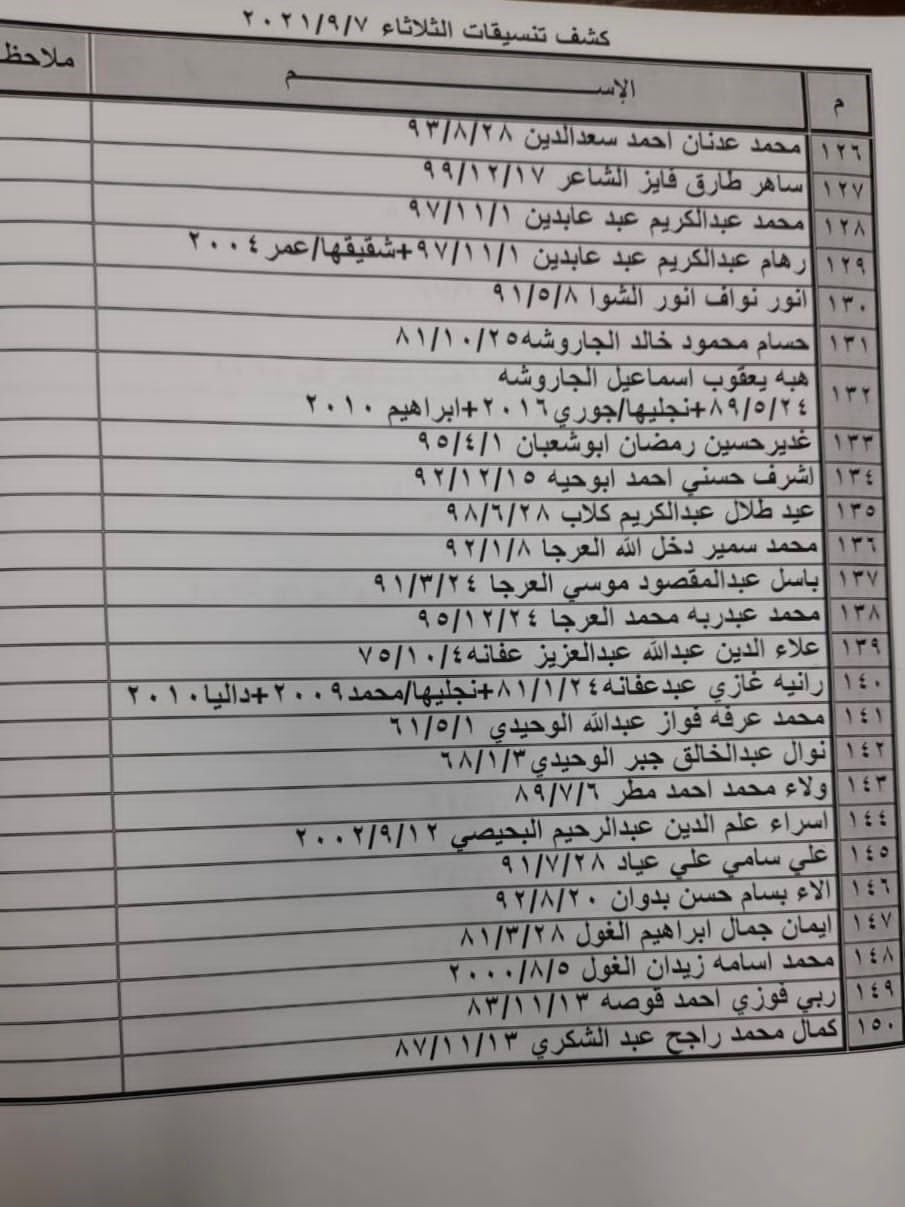 كشف تنسيقات الثلاثاء ٢٠٢١/٩/٧
م الإســـــــــم ملاحظ
١٢٦ محمد عدنان احمد سعدالدين ٩٣/٨/٢٨
١٢٧ ساهر طارق فايز الشاعر ٩٩/١٢/١٧
١٢٨ محمد عبدالكريم عبد عابدين ٩٧/١١/١
١٢٩ رهام عبدالكريم عبد عابدين ٩٧/١١/١+شقيقها/عمر ٢٠٠٤
١٣٠ انور نواف انور الشوا ٩١/٥/٨
١٣١ حسام محمود خالد الجاروشه٨١/١٠/٢٥
١٣٢ هبه يعقوب اسماعيل الجاروشه
٨٩/٥/٢٤+نجليها/جوري٢٠١٦+ابراهيم ٢٠١٠
١٣٣ غديرحسين رمضان ابوشعبان ٩٥/٤/١
١٣٤ اشرف حسني احمد ابوحيه ٩٢/١٢/١٥
١٣٥ عيد طلال عبدالكريم كلاب ٩٨/٦/٢٨
١٣٦ محمد سمير دخل الله العرجا ٩٢/١/٨
١٣٧ باسل عبدالمقصود موسي العرجا ٩١/٣/٢٤
١٣٨ محمد عبدربه محمد العرجا ٩٥/١٢/٢٤
١٣٩ علاء الدين عبدالله عبدالعزيز عفانه٧٥/١٠/٤
١٤٠ رانيه غازي عبدعفانه٨١/١/٢٤+نجليها/محمد٢٠٠٩+داليا٢٠١٠
١٤١ محمد عرفه فواز عبدالله الوحيدي ٦١/٥/١
١٤٢ نوال عبدالخالق جبر الوحيدي٦٨/١/٣
١٤٣ ولاء محمد احمد مطر ٨٩/٧/٦
١٤٤ اسراء علم الدين عبدالرحيم البحيصي ٢٠٠٢/٩/١٢
١٤٥ علي سامي علي عياد ٩١/٧/٢٨
١٤٦ الاء بسام حسن بدوان ٩٢/٨/٢٠
١٤٧ ايمان جمال ابراهيم الغول ٨١/٣/٢٨
١٤٨ محمد اسامه زيدان الغول ٢٠٠٠/٨/٥
١٤٩ ربي فوزي احمد قوصه ٨٣/١١/١٣
١٥٠ كمال محمد راجح عبد الشكري ٨٧/١١/١٣